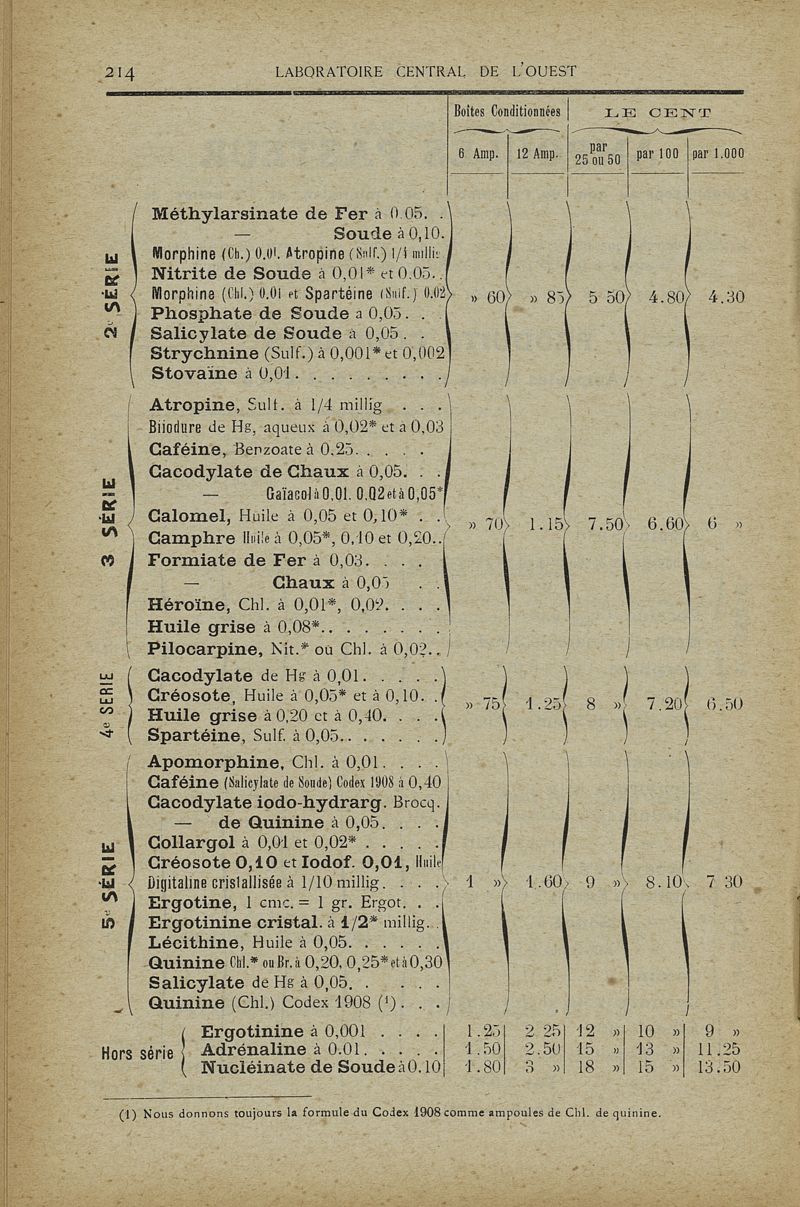 214 LABORATOIRE CENTRAL DE L'OUEST
Boîtes Conditionnées LE CENT
6 Amp. 12 Amp. par 25 ou 50 par 100 par 1.000
2e SÉRIE
Méthylarsinate de Fer à 0.05. .
— Soude à 0,10.
Morphine (Ch.) 0.01. Atropine (Sulf.) 1/4 millig
Nitrite de Soude à 0,01* et 0.05. .
Morphine (Chl.) 0.01 et Spartéine (Sulf.) 0.02 » 60 » 85 5 50 4.80 4.30
Phosphate de Soude a 0,05. . .
Salicylate de Soude à 0,05 . .
Strychnine (Sulf.) à 0,001* et 0,002
Stovaïne à 0,01. . . . . . . . .
3 SÉRIE
Atropine, Sulf. à 1/4 millig . . .
Biiodure de Hg, aqueux à 0,02* et à 0,03
Caféine, Benzoate à 0.25. . . . .
Cacodylate de Chaux à 0,05. . .
— Gaïacol à 0,01. 0,02 et à 0,05*
Calomel, Huile à 0,05 et 0,10* . . » 70 1.15 7.50 6.60 6 »
Camphre Huile à 0,05*, 0,10 et 0,20. .
Formiate de Fer à 0,03. . . .
— Chaux à 0,05 . .
Héroïne, Chl. à 0,01*, 0,02. . . .
Huile grise à 0,08*. . . . . . . .
Pilocarpine, Nit.* ou Chl. à 0,02. .
4e SERIE
Cacodylate de Hg à 0,01. . . . .
Créosote, Huile à 0,05* et à 0,10. . » 75 1.25 8 » 7.20 6.50
Huile grise à 0,20 et à 0,40. . . .
Spartéine, Sulf. à 0,05. . . . . . .
5e SÉRIE
Apomorphine, Chl. à 0,01. . . .
Caféine (Salicylate de Soude) Codex 1908 à 0,40
Cacodylate iodo-hydrarg. Brocq.
— de Quinine à 0,05. . . .
Collargol à 0,01 et 0,02* . . . . .
Créosote 0,10 et Iodof. 0,01, Huile
Digitaline cristallisée à 1/10 millig. . . . 1 » 1.60 9 » 8.10 7 30
Ergotine, 1 cmc. = 1 gr. Ergot. . .
Ergotinine cristal. à 1/2* millig. .
Lécithine, Huile à 0,05. . . . . .
Quinine Chl.* ou Br. à 0,20, 0,25* et à 0,30
Salicylate de Hg à 0,05. . . . . .
Quinine (Chl.) Codex 1908 (1). . .
Hors série
Ergotinine à 0,001 . . . . 1.25 2 25 12 » 10 » 9 »
Adrénaline à 0.01. . . . . 1.50 2.50 15 » 13 » 11.25
Nucléinate de Soude à 0.10 1.80 3 » 18 » 15 » 13.50
(1) Nous donnons toujours la formule du Codex 1908 comme ampoules de Chl. de quinine.